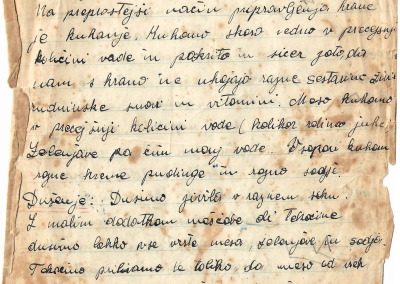 Na preprostejši način pripravljenja hrane
je kuhanje. Kuhamo skoro vedno v precejšnji
količini vode in pokrito in sicer zato da
nam s hrano ne uhajajo razne sestavine
rudninske snovi in vitamini. Meso kuhamo
v precejšnji količini vode (kolikor rabimo juhe,
Zelenjave pa čim manj vode. V sopari kuhamo
razne kreme pudinge in razno sadje.
Dušenje: Dusimo živila v raznem soku.
Z malim dodatkom maščobe ali tekočine
dusimo lahko vse vrste mesa, zelenjave in sadje.
Tekočino prilivamo le toliko, da meso od vseh